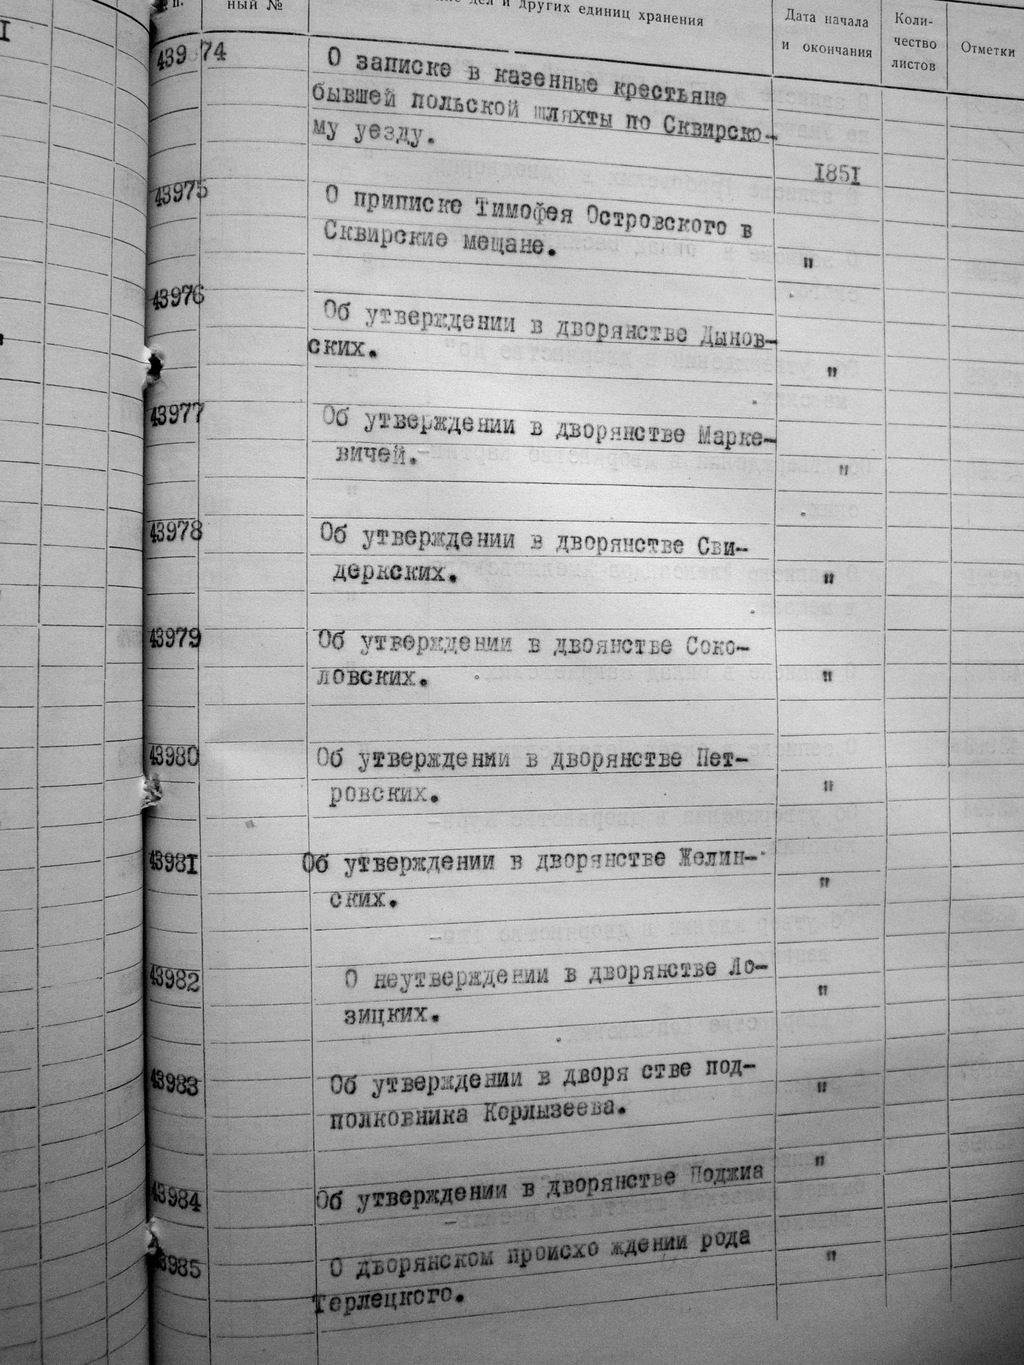 п.
ный №
дел и других единиц хранения
Дата начала
и окончания
Коли-
чество
листов
Отметки
43974
О записке в казенные крестьяне
бывшей польской шляхты по Сквирско-
му уезду.
1851
43975
О приписке Тимофея Островского в
Сквирские мещане.
"
43976
Об утверждении в дворянстве Дынов-
ских.
"
43977
Об утверждении в дворянстве Марке-
вичей.
"
43978
Об утверждении в дворянстве Сви-
деркских.
"
43979
Об утверждении в двоянстве Соко-
ловских.
"
43980
Об утверждении в дворянстве Пет-
ровских.
"
43981
Об утверждении в дворянстве Желин-
ских.
"
43982
О неутверждении в дворянстве Ло-
зицких.
"
43983
Об утверждении в дворя стве под-
полковника Корлызеева.
"
43984
Об утверждении в дворянстве Поджиа
"
3985
О дворянском происхо ждении рода
Терлецкого.
"